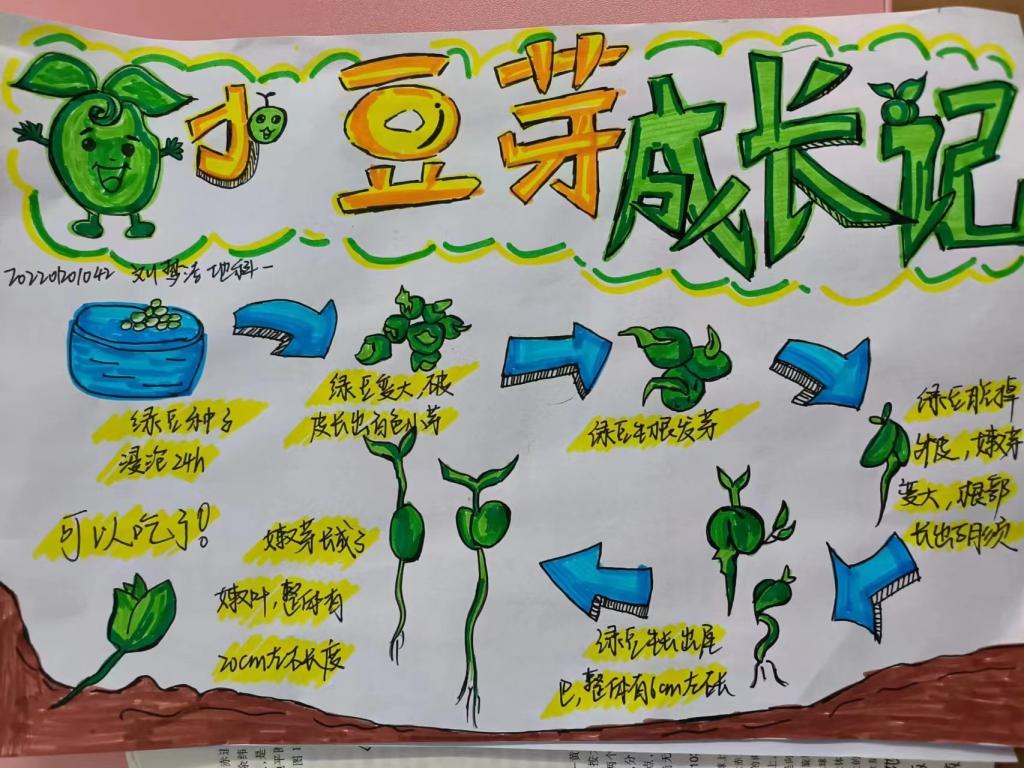 小豆芽成长记
202201201042 刘梦洁 地科一
绿豆种子
浸泡24h
绿豆变大,破
皮长出白色小芽
绿豆生根发芽
绿豆脱掉
外皮,嫩芽
变大,根部
长出百须
绿豆生长出尾
巴,整体有6cm左右长
嫩芽长成了
嫩叶,整体有
20cm左右长度
可以吃了!